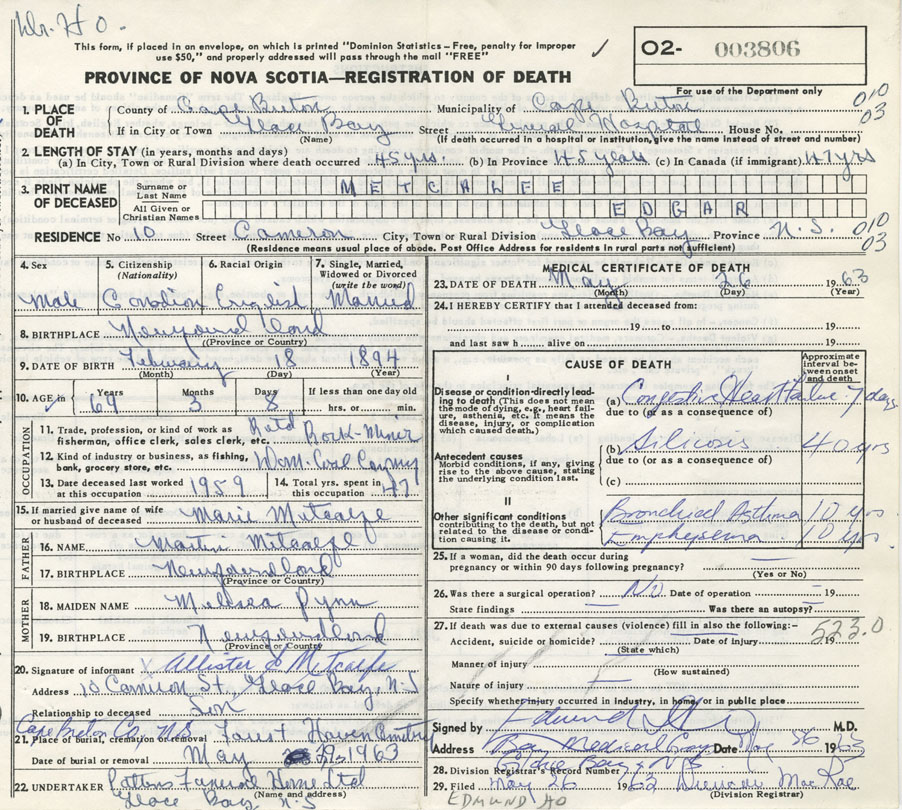 Dr. H O.
This form, if placed in an envelope, on which is printed "Dominion Statistics – Free, penalty for improper
use $50," and properly addressed will pass through the mail "FREE"
✓
O2- 003806
PROVINCE OF NOVA SCOTIA—REGISTRATION OF DEATH
For use of the Department only
1. PLACE OF DEATH County of Cape Breton Municipality of Cape Breton 010
If in City or Town Glace Bay Street General Hospital House No. 03
(Name) (If death occurred in a hospital or institution, give the name instead of street and number)
2. LENGTH OF STAY (in years, months and days)
(a) In City, Town or Rural Division where death occurred 45 yrs. (b) In Province 45 years (c) In Canada (if immigrant) 47 yrs
3. PRINT NAME OF DECEASED Surname or Last Name METCALFE
All Given or Christian Names EDGAR
RESIDENCE No 10 Street Cameron City, Town or Rural Division Glace Bay Province N.S. 010
(Residence means usual place of abode. Post Office Address for residents in rural parts not sufficient) 03
4. Sex 5. Citizenship (Nationality) 6. Racial Origin 7. Single, Married, Widowed or Divorced (write the word)
Male Canadian English Married
8. BIRTHPLACE Newfoundland
(Province or Country)
9. DATE OF BIRTH February 18 1894
(Month) (Day) (Year)
10. AGE in Years Months Days If less than one day old
69 3 8 hrs. or min.
OCCUPATION
11. Trade, profession, or kind of work as fisherman, office clerk, sales clerk, etc. Retd Rock-Miner
12. Kind of industry or business, as fishing, bank, grocery store, etc. Dom. Coal Company
13. Date deceased last worked at this occupation 1959 14. Total yrs. spent in this occupation 47
15. If married give name of wife or husband of deceased Marie Metcalfe
FATHER
16. NAME Martin Metcalfe
17. BIRTHPLACE Newfoundland
(Province or Country)
MOTHER
18. MAIDEN NAME Melissa Pynn
19. BIRTHPLACE Newfoundland
(Province or Country)
20. Signature of informant X Allister J Metcalfe
Address 10 Cameron St. Glace Bay, N.S
Relationship to deceased Son
Cape Breton Co. N.S.
21. Place of burial, cremation or removal Forest Haven Cemetery
Date of burial or removal May 29, 1963
22. UNDERTAKER Pattens Funeral Home Ltd
(Name and address)
Glace Bay N.S
MEDICAL CERTIFICATE OF DEATH
23. DATE OF DEATH May 26 1963
(Month) (Day) (Year)
24. I HEREBY CERTIFY that I attended deceased from:
19 to 19
and last saw h alive on 19
CAUSE OF DEATH
Approximate interval between onset and death
I
Disease or condition directly leading to death (This does not mean the mode of dying, e.g., heart failure, asthenia, etc. It means the disease, injury, or complication which caused death.)
(a) Congestive Heart Failure 7 days
due to (or as a consequence of)
Antecedent causes
Morbid conditions, if any, giving rise to the above cause, stating the underlying condition last.
(b) Silicosis 40 yrs
due to (or as a consequence of)
(c)
II
Other significant conditions contributing to the death, but not related to the disease or condition causing it.
Bronchial Asthma 10 yrs
Emphysema 10 yrs.
25. If a woman, did the death occur during
pregnancy or within 90 days following pregnancy?
(Yes or No)
26. Was there a surgical operation? No Date of operation 19
State findings Was there an autopsy?
27. If death was due to external causes (violence) fill in also the following:- 523.0
Accident, suicide or homicide? Date of injury 19
(State which)
Manner of injury
(How sustained)
Nature of injury
Specify whether injury occurred in Industry, in home, or in public place
Signed by Edmund M.D.
Address Medical Date May 26 1963
Glace Bay N S
28. Division Registrar's Record Number
29. Filed May 26 1963 MacRae
(Division Registrar)
EDMUND HO